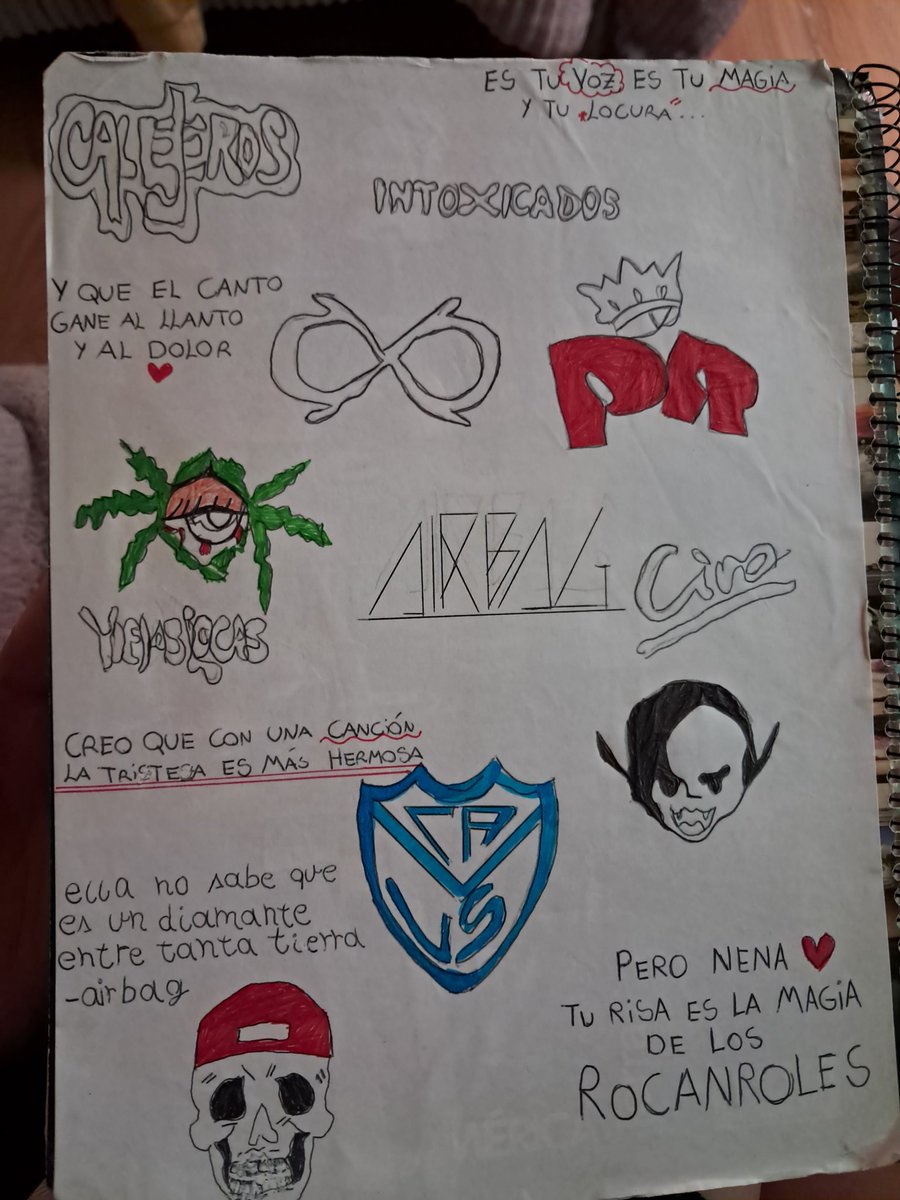 CALLEJEROS
ES TU VOZ ES TU MAGIA
Y TU "LOCURA"...
INTOXICADOS
Y QUE EL CANTO
GANE AL LLANTO
Y AL DOLOR
PR
AIRBAG
Ciro
VIEJAS LOCAS
CREO QUE CON UNA CANCIÓN
LA TRISTESA ES MÁS HERMOSA
CA
VS
ella no sabe que
es un diamante
entre tanta tierra
-airbag
PERO NENA
TU RISA ES LA MAGIA
DE LOS
ROCANROLES